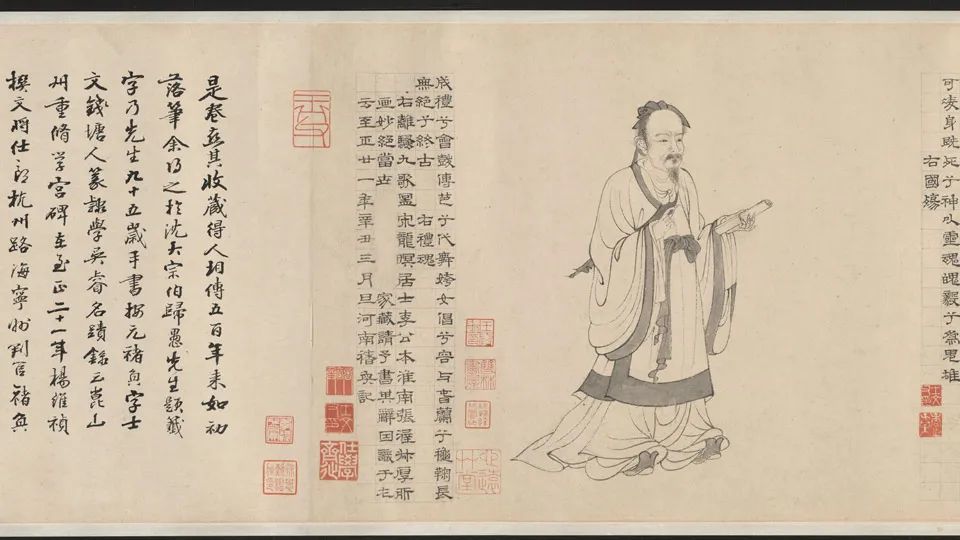 可凌身既死兮神以靈魂魄毅兮爲鬼雄
右國殤
成禮兮會鼓傳芭兮代舞姱女倡兮容與春蘭兮秋鞠長
無絕兮終古　右禮魂
右離騷九歌圖宋龍瞑居士李公本淮南張渥叔厚所
画妙絕當世　家藏請予書其辭因識于左
云至正廿一年辛丑三月旦河南褚奐記
是卷其收藏得人相傳五百年来如初
落筆余得之於沈大宗伯歸愚先生題籤
字乃先生九十五歲年書按元褚奐字士
文錢塘人篆隸學吳睿名蹟錄云崑山
州重脩学宮碑在至正二十一年楊維禎
撰文将仕郎杭州路海寧州判官褚奐